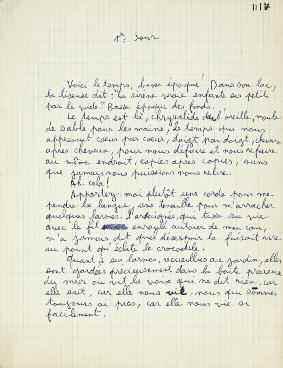 1er jour
Voici le temps, basse époque! Dans son lac,
la liseuse dit: la sirène vraie enfante ses petits
par le vide. Basse époque des fonds.
Le temps est là, chrysalide vieille, moule
de sable pour les mains, le temps que nous
apprenons cœur par cœur, doigt par doigt, cheveu
après cheveu, pour nous défaire et nous refaire
au même endroit, copies après copies, sans
que jamais nous puissions nous relire.
Ah cela!
Apportez-moi plutôt une corde pour me
pendre la langue, une tenaille pour m'arracher
quelques larmes. L'araignée qui tisse sa vie
avec le fil enroulé autour de mon cou,
n'a jamais dit quel destin la faisait rire
au point qu'éclate le crocodile.
Quant à ses larmes, recueillies au jardin, elles
sont gardées précieusement dans la boîte
du mois où vit la voix qui ne dit rien, car
elle sait, car elle nous vit, nous qui sommes
toujours si près, car elle nous vit si
facilement.